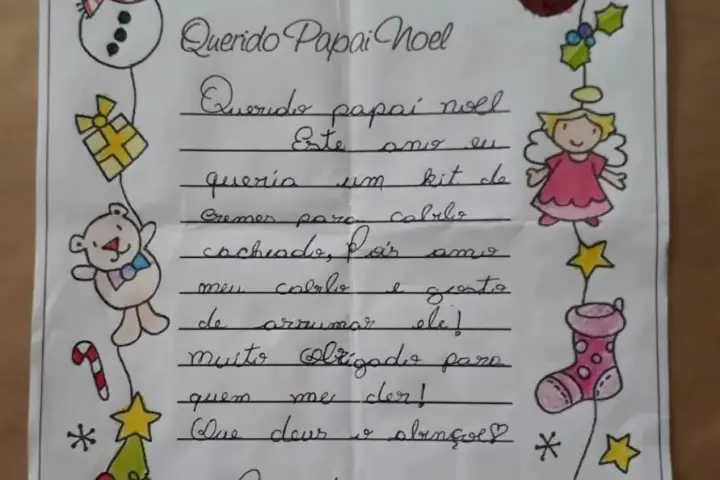 Querido Papai Noel
Querido papai noel
Este ano eu
queria um kit de
cremes para cabelo
cacheado, Pois amo
meu cabelo e gosto
de arrumar ele!
muito obrigado para
quem me der!
Que deus o abençoe♡